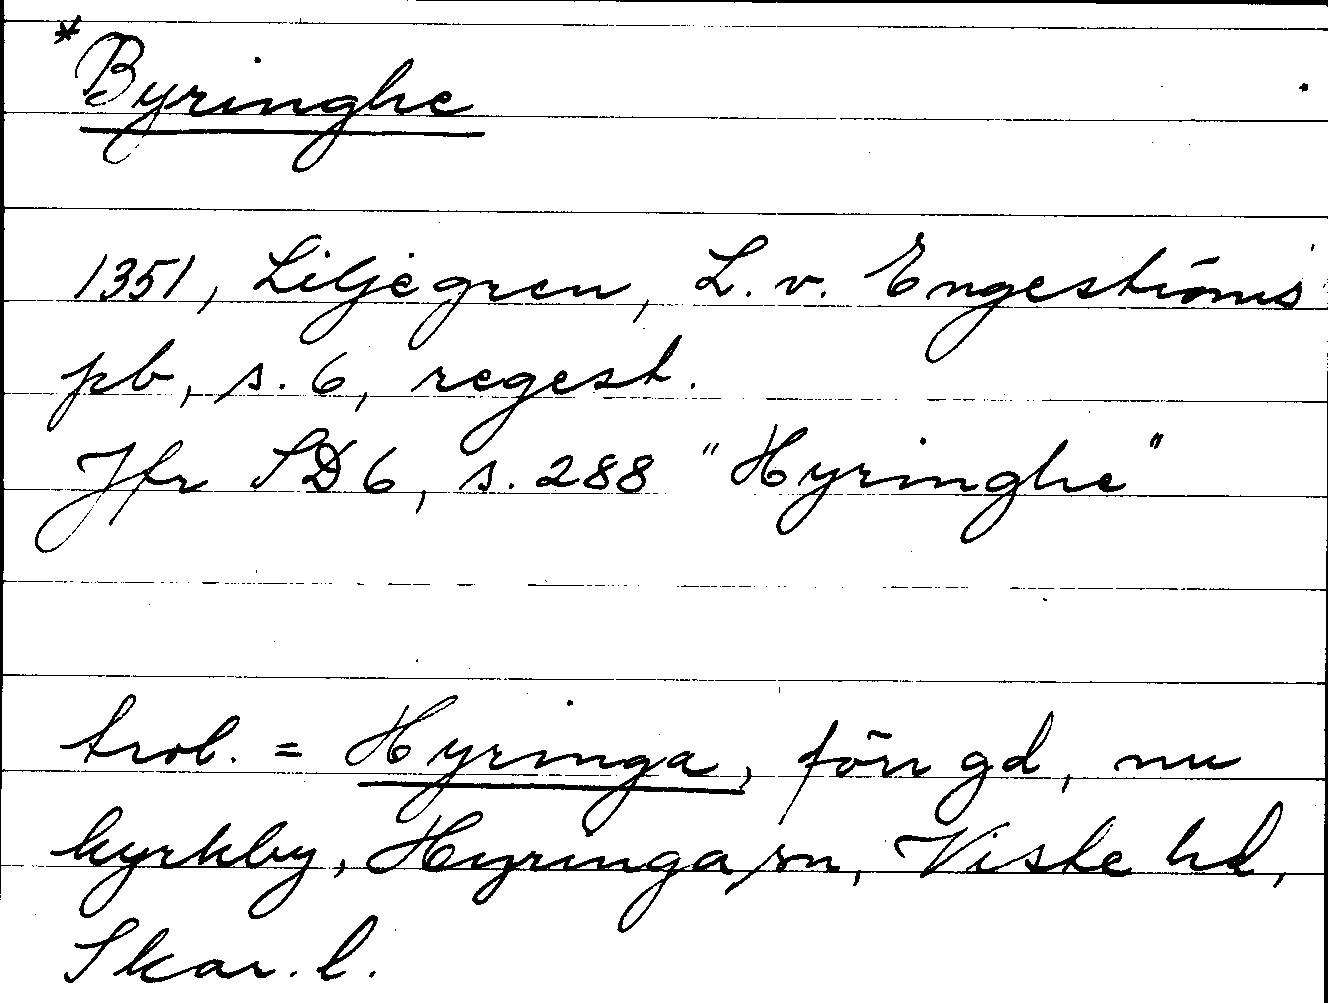 *Byringhe
1351, Liljegren, L. v. Engeströms
pb, s. 6, regest.
Jfr SD 6, s. 288 "Hyringhe"
trol. = Hyringa, förr gd, nu
kyrkby, Hyringa sn, Viste hd,
Skar. l.